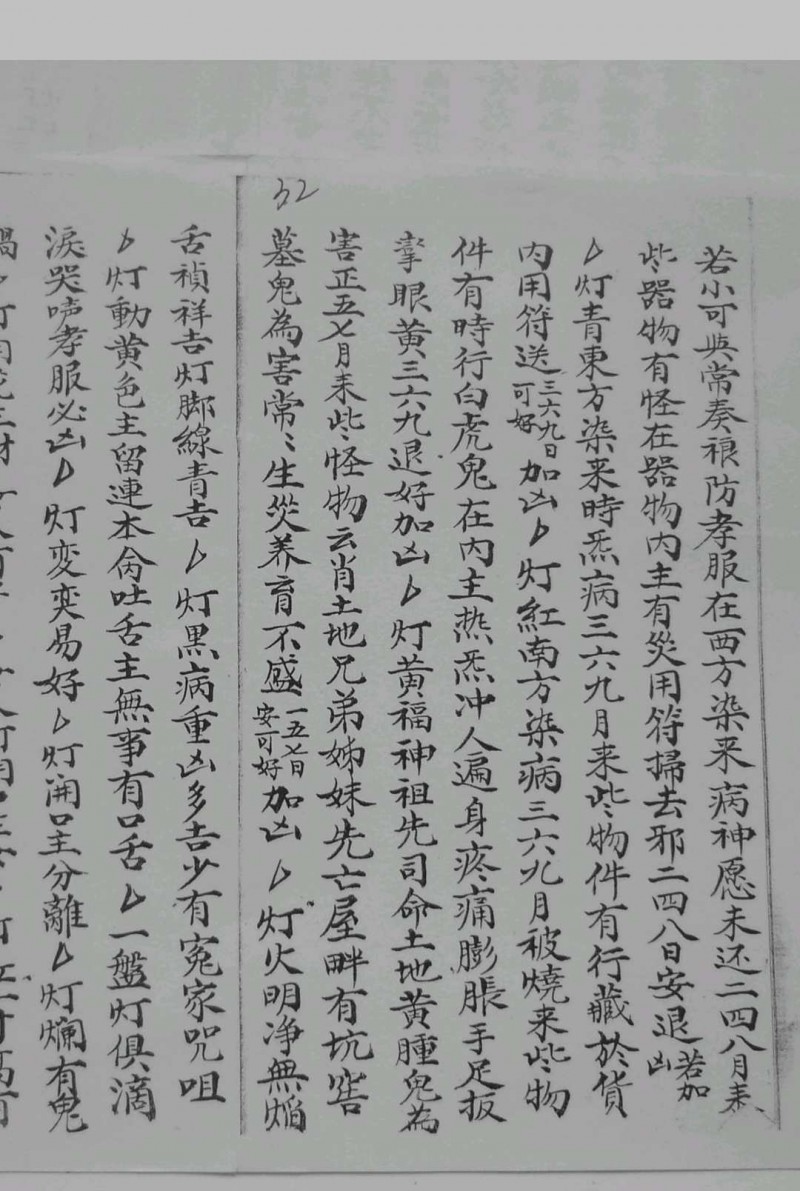 32
若小可與常奏禳防孝服在西方染來病神愿未还二四八月来
些器物有怪在器物内主有災用符掃去邪二四八日安退若加凶
灯青東方染来時炁病三六九月来些物件有行藏於貨
内用符送三六九日可好加凶灯紅南方染病三六九月被燒来些物
件有時行白虎鬼在内主热炁冲人遍身疼痛膨脹手足扳
拏眼黄三六九退好加凶灯黄福神祖先司命土地黄腫鬼為
害正五七月来些怪物云肖土地兄弟姊妹先亡屋畔有坑窖
墓鬼為害常〻生災养育不盛一五七日安可好加凶灯火明净無焰
舌禎祥吉灯脚線青吉灯黒病重凶多吉少有冤家咒咀
灯動黄色主留連本命吐舌主無事有口舌一盤灯俱滴
淚哭声孝服必凶灯变奕易好灯開口主分離灯爛有鬼